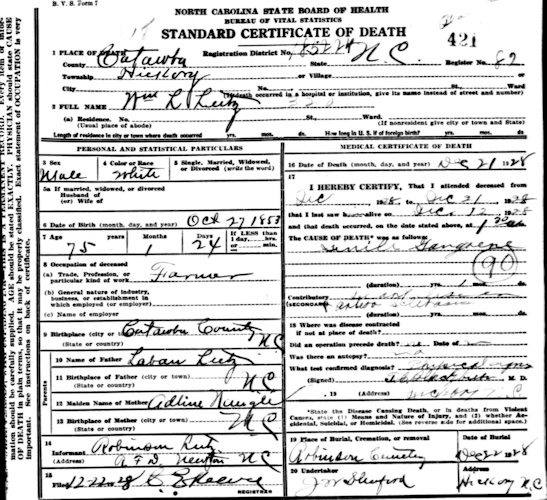 B. V. S. Form 7
NORTH CAROLINA STATE BOARD OF HEALTH
BUREAU OF VITAL STATISTICS
STANDARD CERTIFICATE OF DEATH
421
1 PLACE OF DEATH
County Catawba Registration District No. State N.C. Register No. 82
Township Hickory or Village or
City No. St. Ward
(If death occurred in a hospital or institution, give its name instead of street and number)
2 FULL NAME Wm L Lutz
(a) Residence. No. St. Ward.
(Usual place of abode) (If nonresident give city or town and State)
Length of residence in city or town where death occurred yrs. mos. ds. How long in U. S. if of foreign birth? yrs. mos. ds.
PERSONAL AND STATISTICAL PARTICULARS
3 Sex
Male
4 Color or Race
White
5 Single, Married, Widowed, or Divorced (write the word)
5a If married, widowed, or divorced
Husband of
(or) Wife of
6 Date of Birth (month, day, and year) Oct 27 1853
7 Age Years Months Days If LESS than
1 day, hrs.
or min.
75 1 24
8 Occupation of deceased
(a) Trade, Profession, or
particular kind of work Farmer
(b) General nature of industry,
business, or establishment in
which employed (or employer)
(c) Name of employer
9 Birthplace (city or town) Catawba County
(State or country) N C
Parents
10 Name of Father Laban Lutz
11 Birthplace of Father (city or town)
(State or country) N C
12 Maiden Name of Mother Adline
13 Birthplace of Mother (city or town)
(State or country) N C
14 Informant Robinson Lutz
(Address) R F D Newton N C
15 Filed 12-22-28
REGISTRAR
MEDICAL CERTIFICATE OF DEATH
16 Date of Death (month, day, and year) Dec 21 1928
17
I HEREBY CERTIFY, That I attended deceased from
Dec 1928, to Dec 21 1928
that I last saw h alive on Dec. 12 1928
and that death occurred, on the date stated above, at 1 30
The CAUSE OF DEATH* was as follows:
Senile Gangrene
90
(duration) yrs. mos. ds.
Contributory
(SECONDARY)
(duration) yrs. mos. ds.
18 Where was disease contracted
if not at place of death?
Did an operation precede death? no Date of
Was there an autopsy?
What test confirmed diagnosis?
(Signed) M. D.
, 19 (Address) Hickory N C
*State the Disease Causing Death, or in deaths from Violent
Causes, state (1) Means and Nature of Injury, and (2) whether Ac-
cidental, Suicidal, or Homicidal. (See reverse side for additional space).
19 Place of Burial, Cremation, or removal Date of Burial
Robinson Cemetery Dec 22 1928
20 Undertaker Address
Hickory N.C